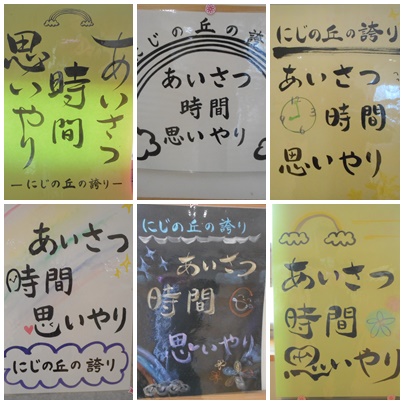 あいさつ
時間
思いやり
―にじの丘の誇り―
にじの丘の誇
あいさつ
時間
思いやり
にじの丘の誇り
あいさつ
時間
思いやり
あいさつ
時間
思いやり
にじの丘の誇り
にじの丘の誇り
あいさつ
時間
思いやり
あいさつ
時間
思いやり